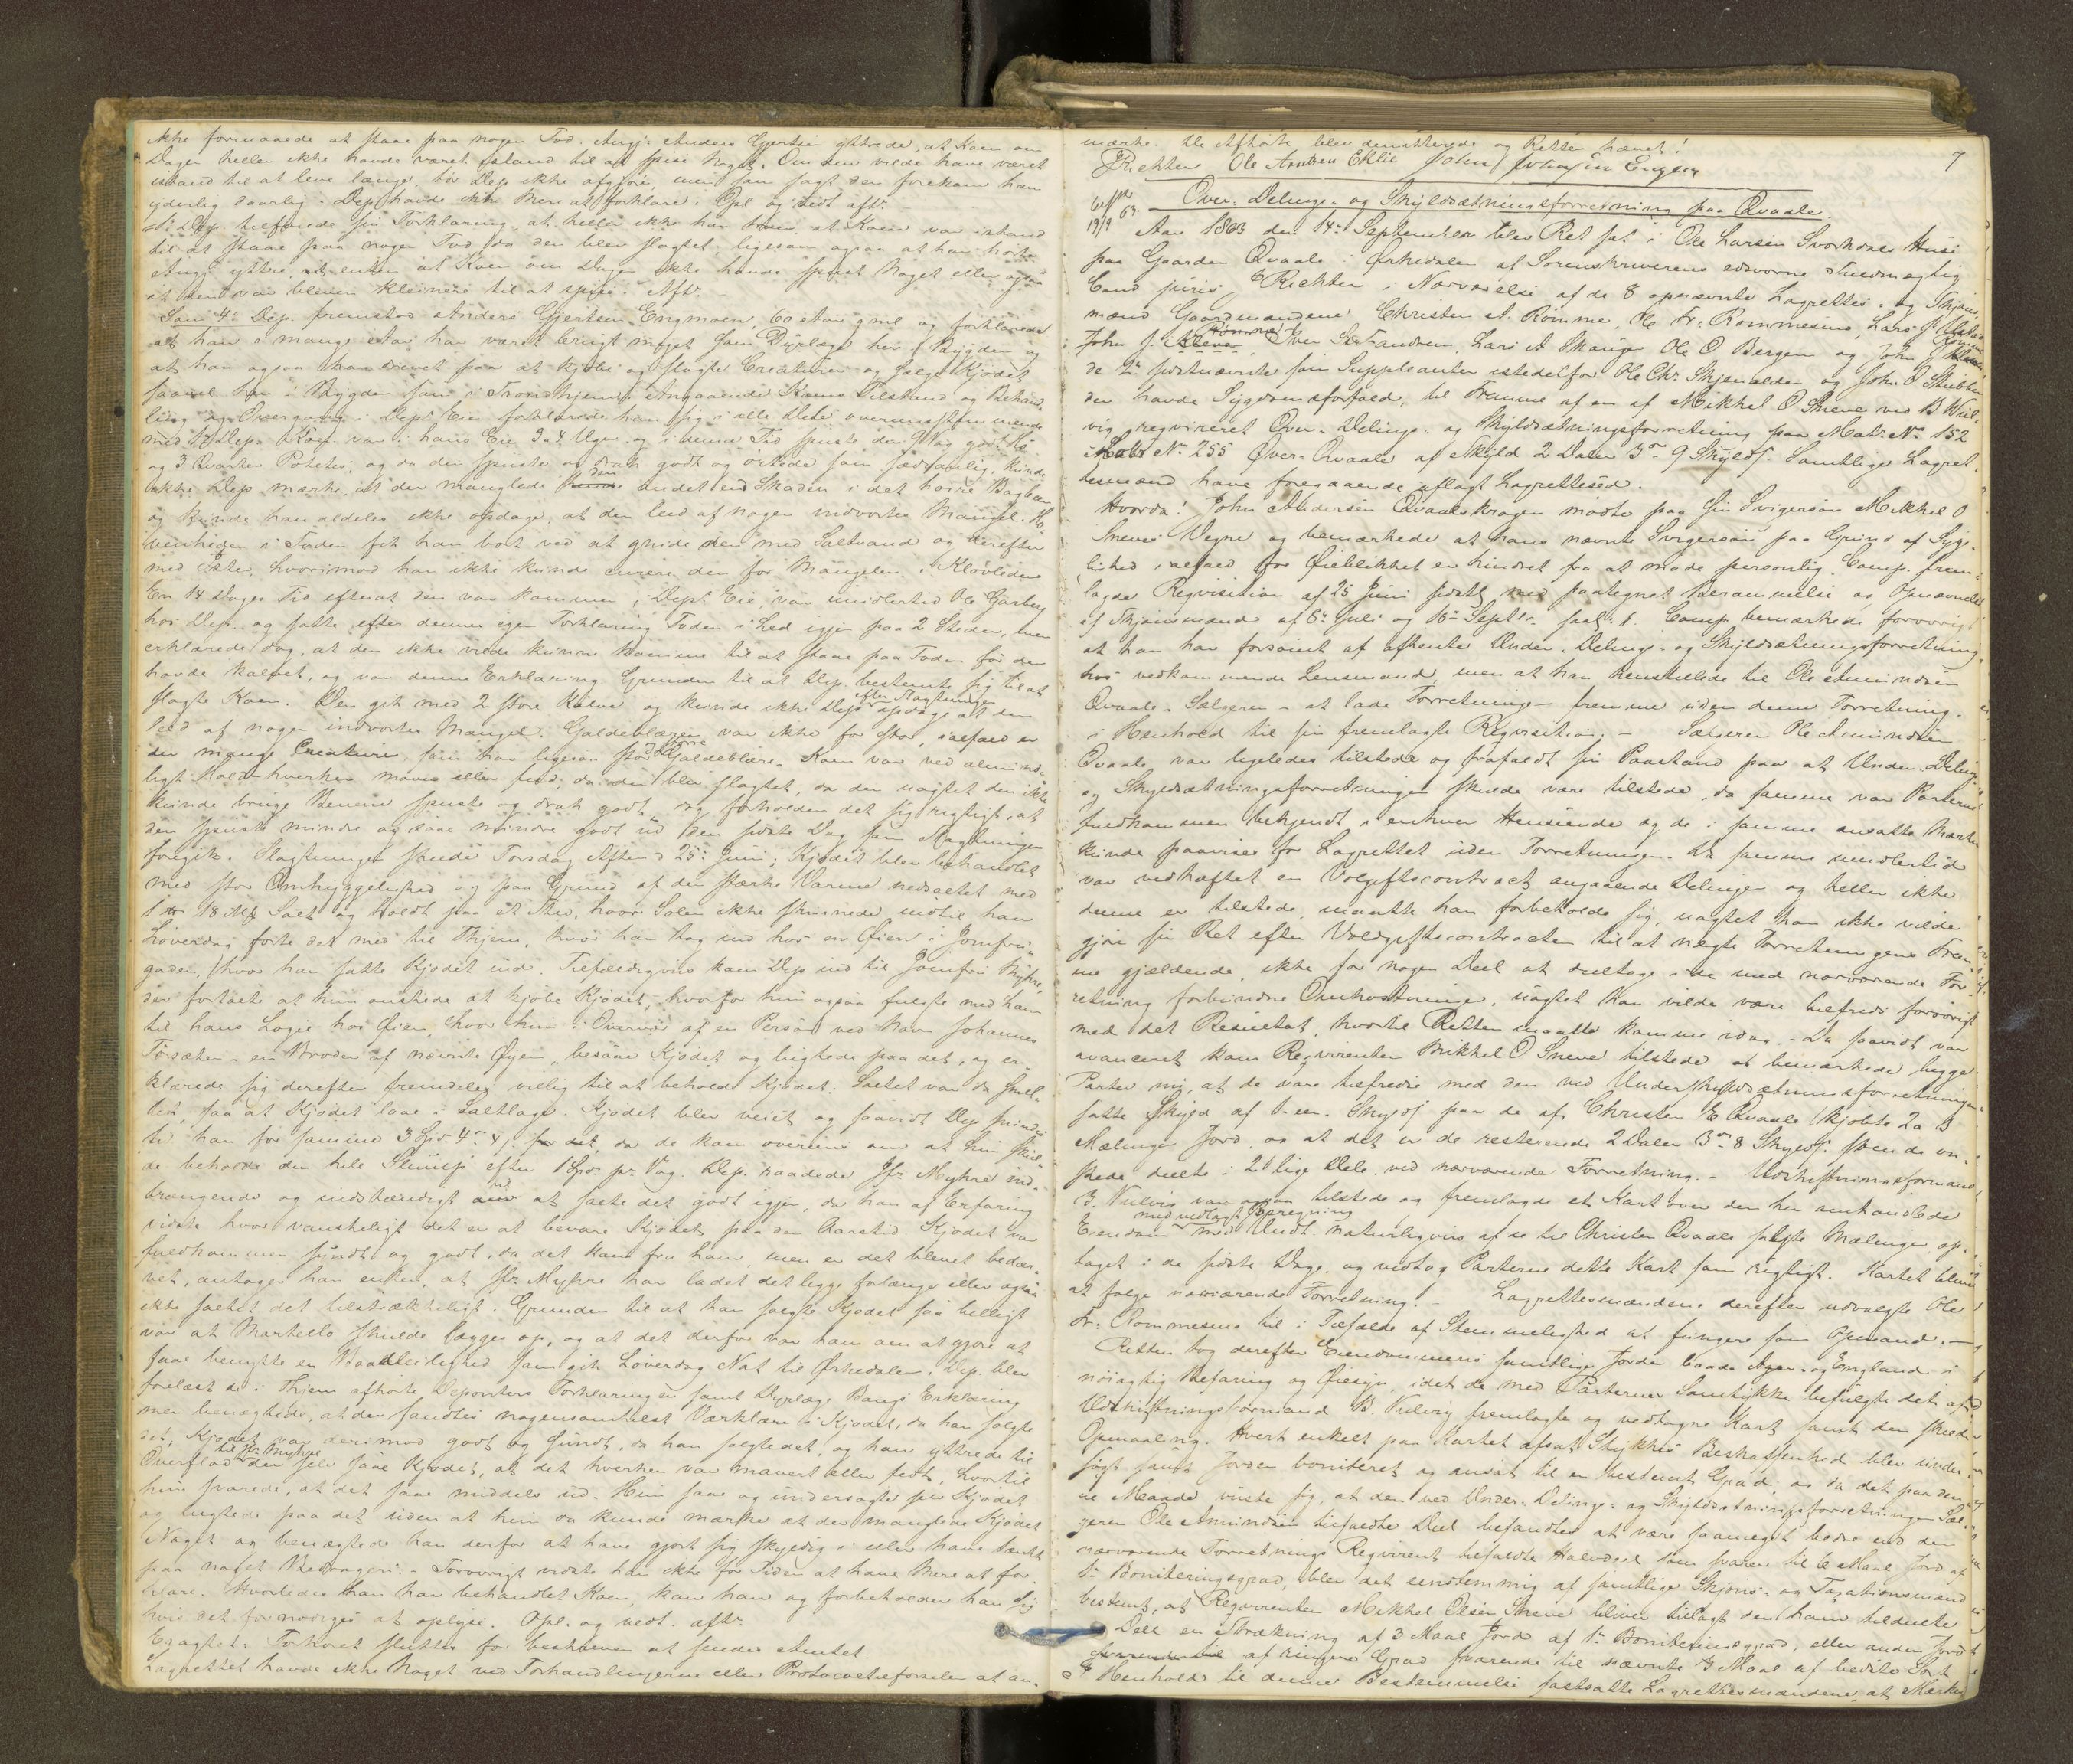 ikke formaaede at staae paa nogen Fod. Ang: Anders Gjertsen yttrede, at Koen om
Dagen heller ikke havde været istand til at spise Noget. Om den vilde have været
istand til at leve længe, tør Dep. ikke afgjøre, men som sagt den forekom ham
yderlig daarlig. Dep. havde ikke Mere at forklare. Opl. og vedt. aftr.
Dep. tilføiede sin Forklaring, at heller ikke han troer, at Koen var istand
til at staae paa nogen Fod da den blev slagtet; ligesom ogsaa at han hørte
Ang: yttre, at enten at Koen om Dagen ikke havde spist Noget eller ogsaa
at den var bleven kleinere til at spise. Aftr.
Som 4de Dep. fremstod Anders Gjertsen Engmoen, 60 Aar gml. og forklarede
at han i mange Aar har været brugt meget som Dyrlæge her i Bygden og
at han ogsaa har drevet paa at kjøbe og slagte Creaturer og sælge Kjødet
saavel her i Bygden som i Trondhjem. Angaaende Koens Tilstand og Behand-
ling og Overgang i Dep. Eie forklarede han sig i alle Dele overensstemmende
med Dep. Koen var i hans Eie 3 a 4 Uger og i denne Tid spiste den godt Hø
og 3 Qvarter Poteter, og da den spiste og drak godt og ørtede som sædvanlig, kunde
ikke Dep. mærke, at den manglede den andet end Skaden i det høire Bagbeen
og kunde han aldeles ikke opdage, at den leed af nogen indvortes Mangel. Hø-
venheden i Foden fik han bort ved at gnide den med Saltvand og derefter
med Ister, hvorimod han ikke kunde curere den for Mangelen i Kløvleden.
En 14 Dages Tid efterat den var kommen i Dep. Eie, var imidlertid Ole Garberg
hos Dep. og satte efter dennes egen Forklaring Foden i Led igjen paa 2 Steder, men
erklærede dog, at den ikke vilde kunne komme til at staae paa Foden før den
havde kalvet, og var denne Erklæring Grunden til at Dep. bestemte sig til at
slagte Koen. Den gik med 2 store Kalve og kunde ikke Dep. efter Slagtningen opdage at den
leed af nogen indvortes Mangel. Galdeblæren var ikke for stor, ialfald er
der mange Creaturer, som har ligesaa stor og større Galdeblære. Koen var ved almind-
ligt Hold hverken maver eller feed, da den blev slagtet, da den uagtet den ikke
kunde bruge Benene spiste og drak godt, dog forholder det sig rigtigt, at
den spiste mindre og saae mindre godt ud den sidste Dag før Slagtningen
foregik. Slagtningen skeede Torsdag Aften d. 25de Juni; Kjødet blev behandlet
med stor Omhyggelighed og paa Grund af den stærke Varme nedsaltet med
18 Salt og holdt paa et Sted, hvor Solen ikke skinnede indtil han
Løverdag førte det med til Thjem, hvor han tog ind hos en Øien i Jomfru-
gaden, hvor han satte Kjødet ind. Tilfældigvis kom Dep. ind til Jomfru Myhre,
der fortalte at hun ønskede at kjøbe Kjødet, hvorfor hun ogsaa fulgte med ham
til hans Logie hos Øien, hvor hun i Overvær af en Person ved Navn Johannes
Forsæter – en Broder af nævnte Øyen – besaae Kjødet og lugtede paa det, og er-
klærede sig derefter fremdeles villig til at beholde Kjødet. Saltet var da smel-
tet, saa at Kjødet laae i Saltlage. Kjødet blev veiet og saavidt Dep. mindes
fik han for samme 3 Spd. 4 for det, da de kom overeens om at hun skul-
de beholde den hele Slump efter 1 Spd. pr. Vog. Dep. raadede Jfr. Myhre ind-
trængende og indstændigt ved at salte det godt igjen, da han af Erfaring
vidste hvor vanskeligt det er at bevare Kjødet paa den Aarstid. Kjødet var
fuldkommen sundt og godt, da det kom fra ham, men er det blevet bedær-
vet, antager han enten, at Jfr. Myhre har ladet det ligge forlænge eller ogsaa
ikke saltet det tilstrækkeligt. Grunden til at han solgte Kjødet saa billigt
var at Markedet skulde lægges op, og at det derfor var ham om at gjøre at
faae benytte en Baadleilighed som gik Løverdag Nat til Ørkedalen. Dep. blev
forelæst de i Thjem afhørte Deponters Forklaringer samt Dyrlæge Bangs Erklæring
men benægtede, at der fandtes nogensomhelst Værkløse i Kjødet, da han solgte
det, Kjødet var derimod godt og sundt, da han solgte det, og han yttrede til
Overflod til Jfr. Myhre der selv saae Kjødet, at det hverken var mavert eller fedt, hvortil
hun svarede, at det saae middels ud. Hun saae og undersøgte selv Kjødet
og lugtede paa det uden at hun da kunde mærke at der manglede Kjødet
Noget og benægtede han derfor at have gjort sig skyldig i eller have tænkt
paa noget Bedrageri. – Forøvrigt vidste han ikke for Tiden at have Mere at for-
klare. Hvorledes han har behandlet Koen, kan han og forbeholder han sig
hvis det fornødiges at oplyse. Opl. og vedt. aftr.
Eragtet: Forhøret sluttes for beskreven at sendes Amtet.
Lagrettet havde ikke Noget ved Forhandlingerne eller Protocoltilførselen at an-
mærke. De Afhørte blev demitterede og Retten hævet!
7
E Richter Ole Arntsen Eklie John Johnsen Engen
19/9 63. Over-Delings- og Skyldsætningsforretning paa Qvaale.
Aar 1863 den 14de September blev Ret sat i Ole Larsen Svorkdals Huse
paa Gaarden Qvaale i Ørkedalen af Sorenskriverens edsvorne Fuldmægtig
Cand. juris E Richter i Nærværelse af de 8 opnævnte Lagrettes- og Skjøns-
mænd Gaardmændene: Christen A. Rømme, Ole Fr: Rommesmo, Lars J
John J. Klever Iver Sandrum, Lars A Skauge Ole O Bergem og John J Rømme
de 2de sidstnævnte som Suppleanter istedetfor Ole Chr. Skjenalden og John O Stubban
der havde Sygdomsforfald, til Fremme af en af Mikkel O Sneve ved B Wul-
vig reqvireret Over-Delings- og Skyldsætningsforretning paa Mat: No 152
Løbe No 255 Øver-Qvaale af Skyld 2 Daler 3 9 Skyldsk. Samtlige Lagret-
tesmænd have foregaaende aflagt Lagretteseed.
Hvorda! John Andersen Qvaalskragen mødte paa sin Svigersøn Mikkel O
Sneves Vegne og bemærkede at hans nævnte Svigersøn paa Grund af Syge-
lighed ialfald for Øieblikket er hindret fra at møde personlig. Comp. frem-
lagde Reqvisition af 25 Juni sidstl. med paategnet Berammelse og Opnævnelse
af Skjønsmænd af 6te Juli og Septbr. Comp. bemærkede forøvrigt
at han har forsømt at afhente Under-Delings- og Skyldsætningsforretning
hos vedkommende Lensmand, men at han henstillede til Ole Amundsen
Qvaale – Sælgeren – at lade Forretningen fremme uden denne Forretning
i Henhold til sin fremlagte Reqvisition. – Sælgeren Ole Amundsen
Qvaale var ligeledes tilstede og frafaldt sin Paastand paa at Under-Delings-
og Skyldsætningsforretningen skulde være tilstede, da samme var Parterne
fuldkommen bekjendt i enhver Henseende og de i samme ansatte Mærker
kunde paavises for Lagrettet uden Forretningen. Da samme imidlertid
var vedhæftet en Volgiftscontract angaaende Delingen og heller ikke
denne er tilstede, maatte han forbeholde sig, uagtet han ikke vilde
gjøre sin Ret efter Voldgiftscontracten til at nægte Forretningens Frem-
me gjældende, ikke for nogen Deel at deeltage i de med nærværende For-
retning forbundne Omkostninger, uagtet han vilde være tilfreds forøvrigt
med det Resultat, hvortil Retten maatte komme idag. – Da saavidt var
avanceret kom Reqvirenten Mikkel O Sneve tilstede at bemærkede begge
Parter nu, at de vare tilfredse med den ved Underskyldsætningsforretningen
satte Skyld af 1 – een – Skyldsk. paa de af Christen E Qvaale kjøbte 2 a 3
Mælinger Jord, og at det er de resterende 2 Daler 3 8 Skyldsk. som de øn-
skede deelte i 2 lige Dele ved nærværende Forretning. – Udskiftningsformand
B. Wulvig var ogsaa tilstede og fremlagde et Kart over den her omhandlede
Eiendom med vedlagt Beregning med Undt. naturligvis af de til Christen Qvaale solgte Mælinger, op-
taget i de sidste Dage, og vedtog Parterne dette Kart som rigtigt. Kartet bliver
at følge nærværende Forretning! – Lagrettesmændene derefter udvalgte Ole
Fr: Rommesmo til i Tilfælde af Stemmelighed at fungere som Opmand. –
Retten tog derefter Eiendommens samtlige Jorder baade Ager- og England i
nøiagtig Befaring og Øiesyn, idet de med Parternes Samtykke befulgte det af
Udskiftningsformand B. Wulvig fremlagte og vedtagne Kart samt den skeede
Opmaaling. Hvert enkelt paa Kartet afsat Stykkes Beskaffenhed blev under-
søgt samt Jorden boniteret og ansat til en bestemt Grad, og da det paa den-
ne Maade viiste sig, at den ved Under-Delings- og Skyldsætningsforretningen Sæl-
geren Ole Amundsen tilfaldte Deel befandtes at være saameget bedre end den
nærværende Forretnings Reqvirent tilfaldte Halvdeel som svarer til 6 Maal Jord af
1ste Boniteringsgrad, blev det eenstemmig af samtlige Skjøns- og Taxationsmænd
bestemt, at Reqvirenten Mikkel Olsen Sneve bliver tillagt den ham tildeelte
Deel en Strækning af 3 Maal Jord af 1ste Boniteringsgrad, eller anden Jord
af ringere Grad svarende til nævnte 3 Maal af bedste Sort
I Henhold til denne Bestemmelse fastsatte Lagrettesmændene, at Mærker